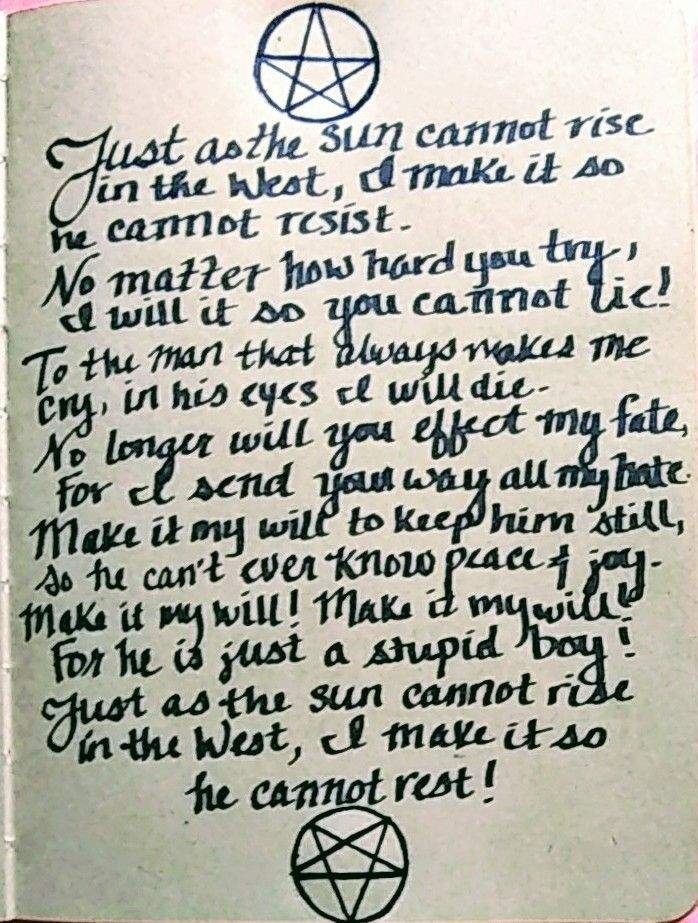 Just as the sun cannot rise
in the West, I make it so
he cannot resist.
No matter how hard you try,
I will it so you cannot lie!
To the man that always makes me
cry, in his eyes I will die.
No longer will you effect my fate,
For I send your way all my hate.
Make it my will to keep him still,
so he can't ever know peace & joy.
Make it my will! Make it my will!
For he is just a stupid boy!
Just as the sun cannot rise
in the West, I make it so
he cannot rest!